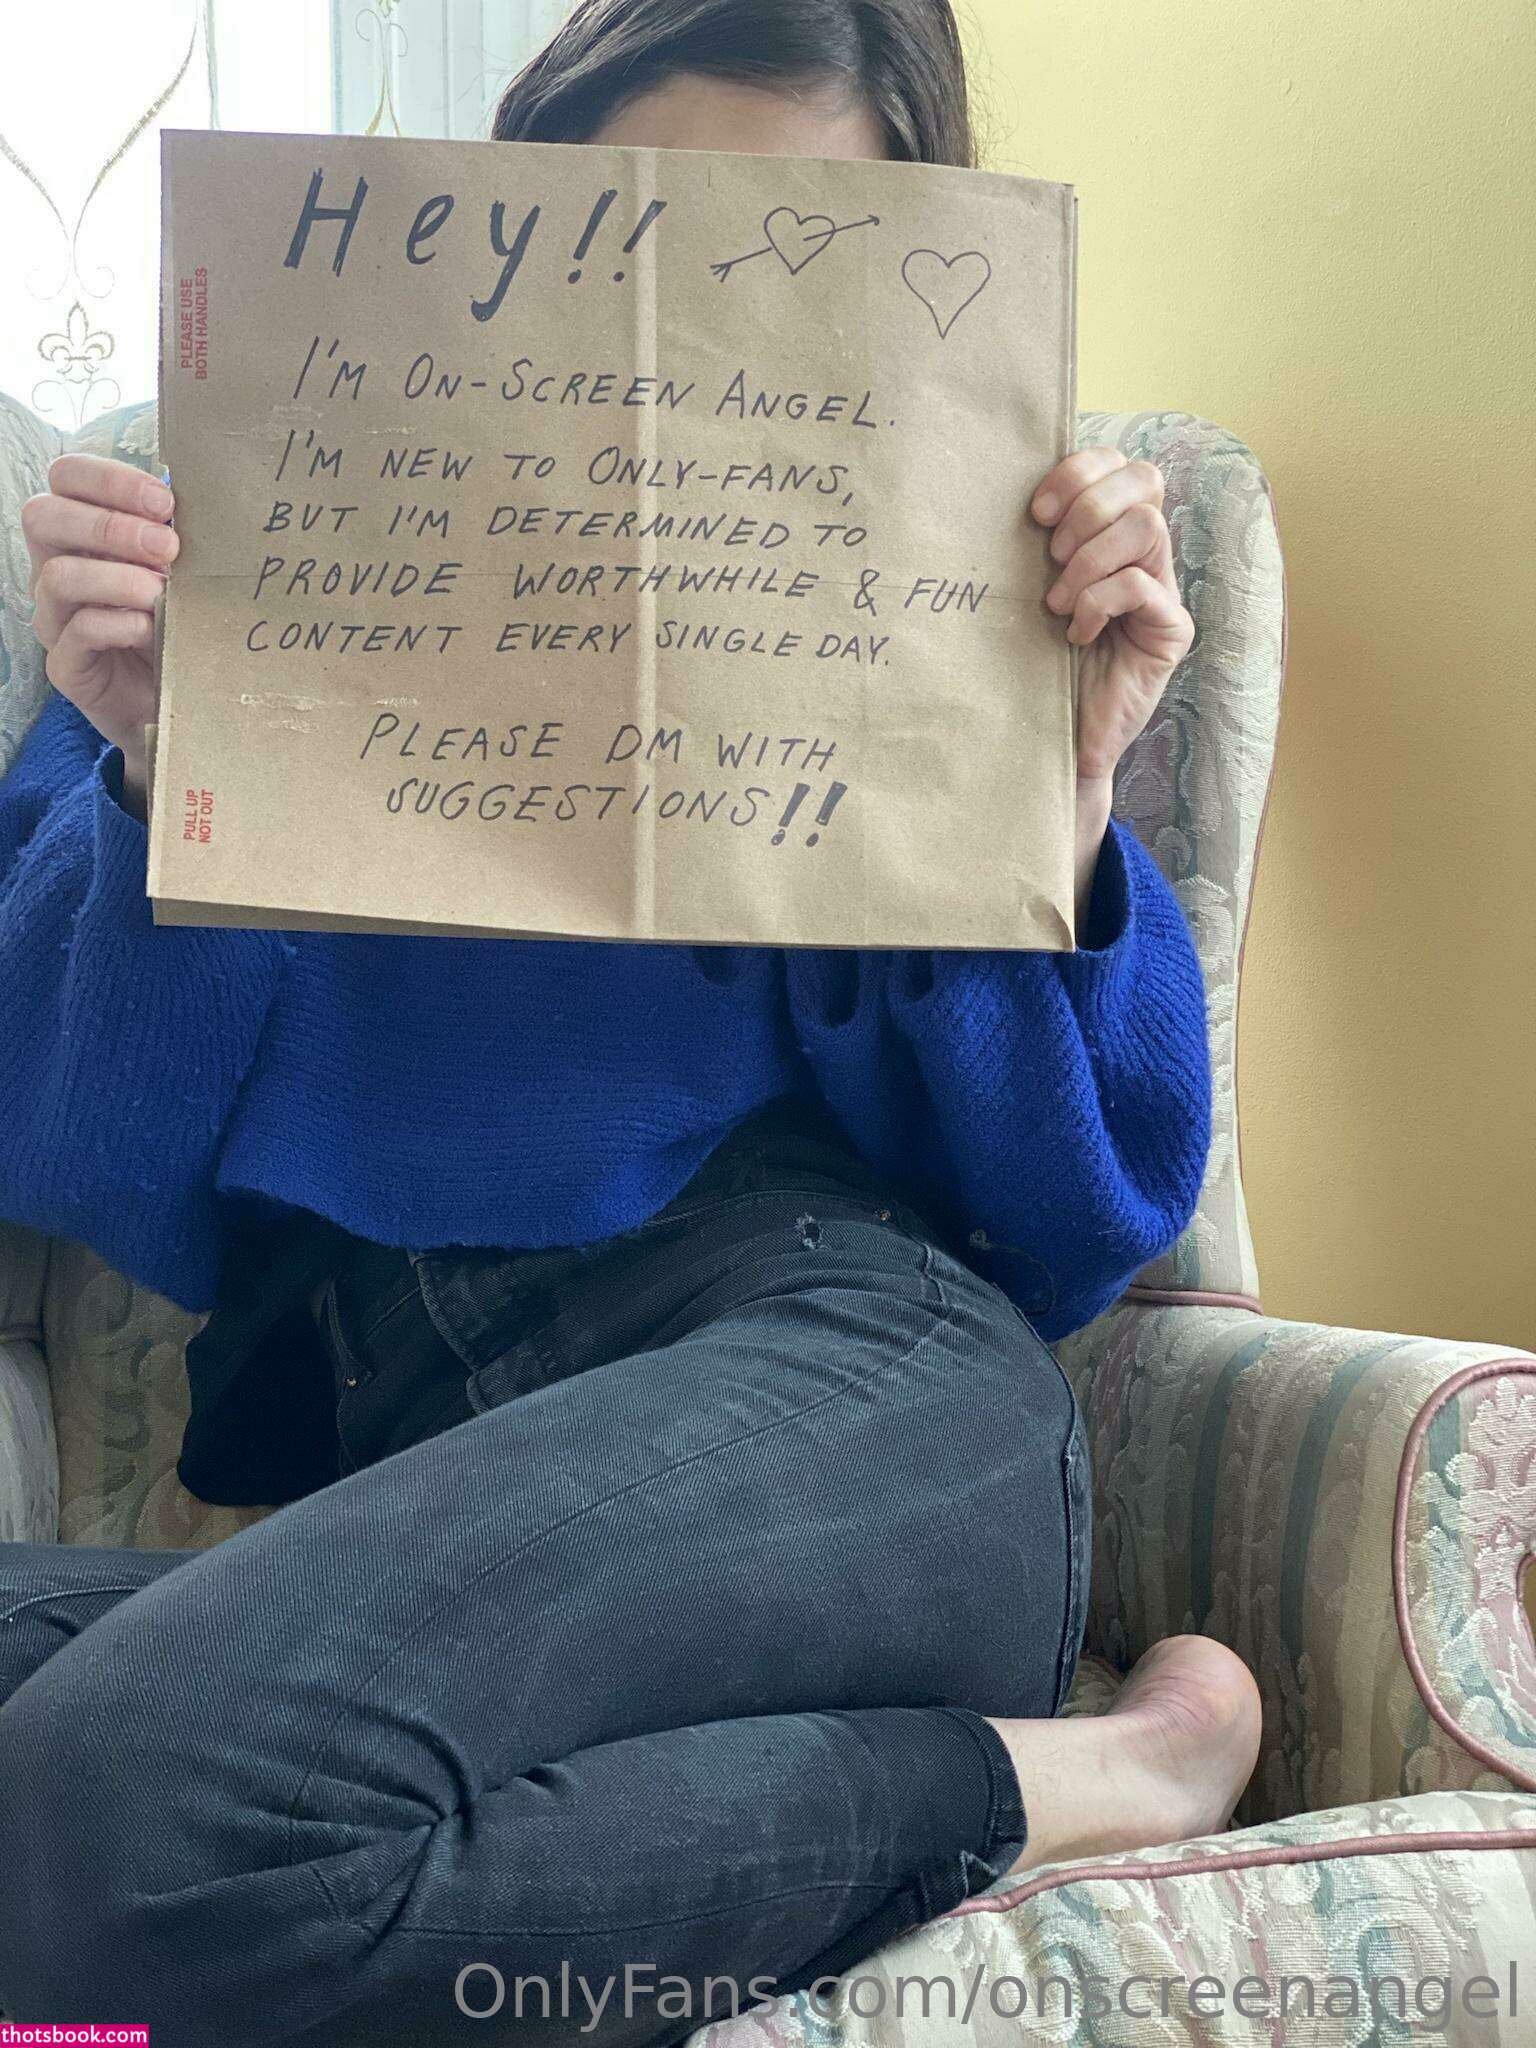 Hey!!
I'M ON-SCREEN ANGEL.
I'M NEW TO ONLY-FANS,
BUT I'M DETERMINED TO
PROVIDE WORTHWHILE & FUN
CONTENT EVERY SINGLE DAY.
PLEASE DM WITH
SUGGESTIONS!!
PLEASE USE
BOTH HANDLES
PULL UP
NOT OUT
OnlyFans.com/onscreenangel
thotsbook.com